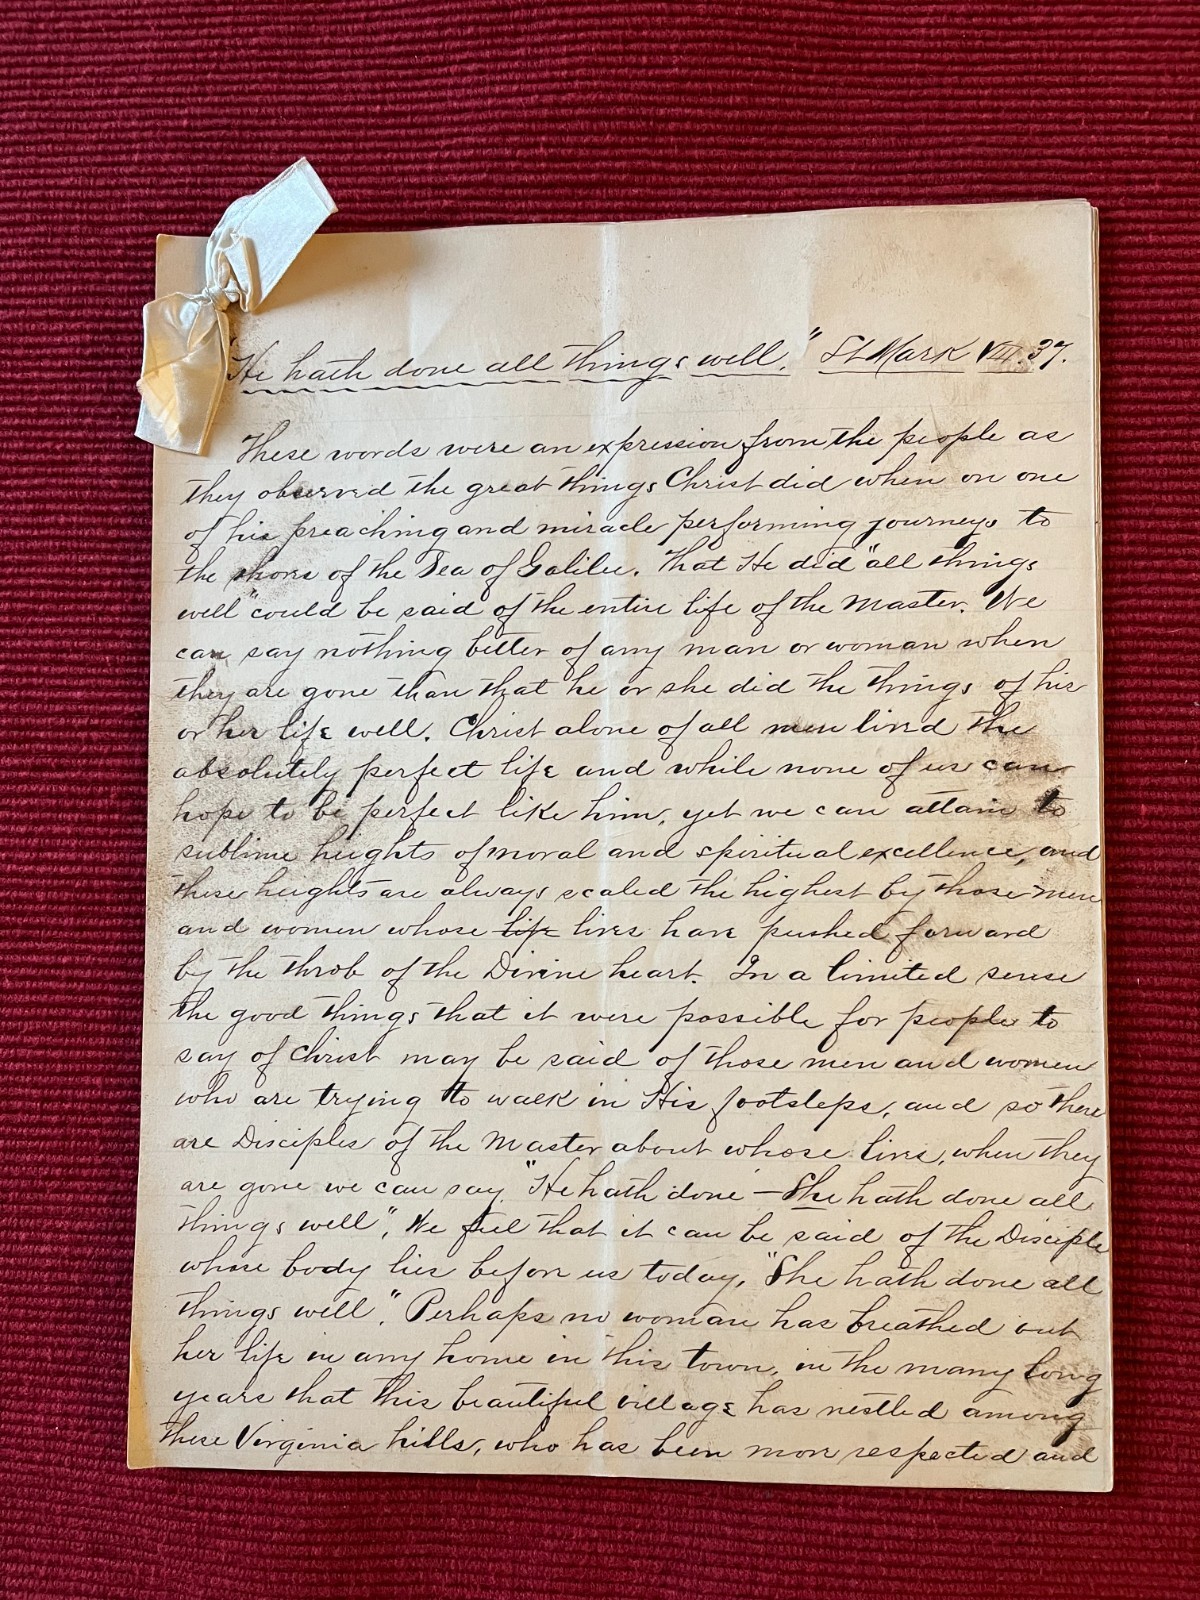 "He hath done all things well." St Mark VII.37.
These words were an expression from the people as
they observed the great things Christ did when on one
of his preaching and miracle performing journeys to
the shore of the Sea of Galilee. That He did "all things
well" could be said of the entire life of the Master. We
can say nothing better of any man or woman when
they are gone than that he or she did the things of his
or her life well. Christ alone of all men lived the
absolutely perfect life and while none of us can
hope to be perfect like him, yet we can attain to
sublime heights of moral and spiritual excellence, and
these heights are always scaled the highest by those men
and women whose life lives have pushed forward
by the throb of the Divine heart. In a limited sense
the good things that it were possible for people to
say of Christ may be said of those men and women
who are trying to walk in His footsteps, and so there
are Disciples of the Master about whose lives, when they
are gone we can say, "He hath done — She hath done all
things well". We feel that it can be said of the Disciple
whose body lies before us today, "She hath done all
things well". Perhaps no woman has breathed out
her life in any home in this town, in the many long
years that this beautiful village has nestled among
these Virginia hills, who has been more respected and